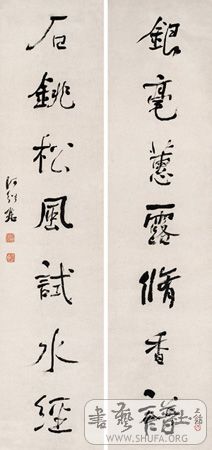 銀毫蕙露脩香
石銚松風試水經
何紹基
WWW.SHUFA.ORG